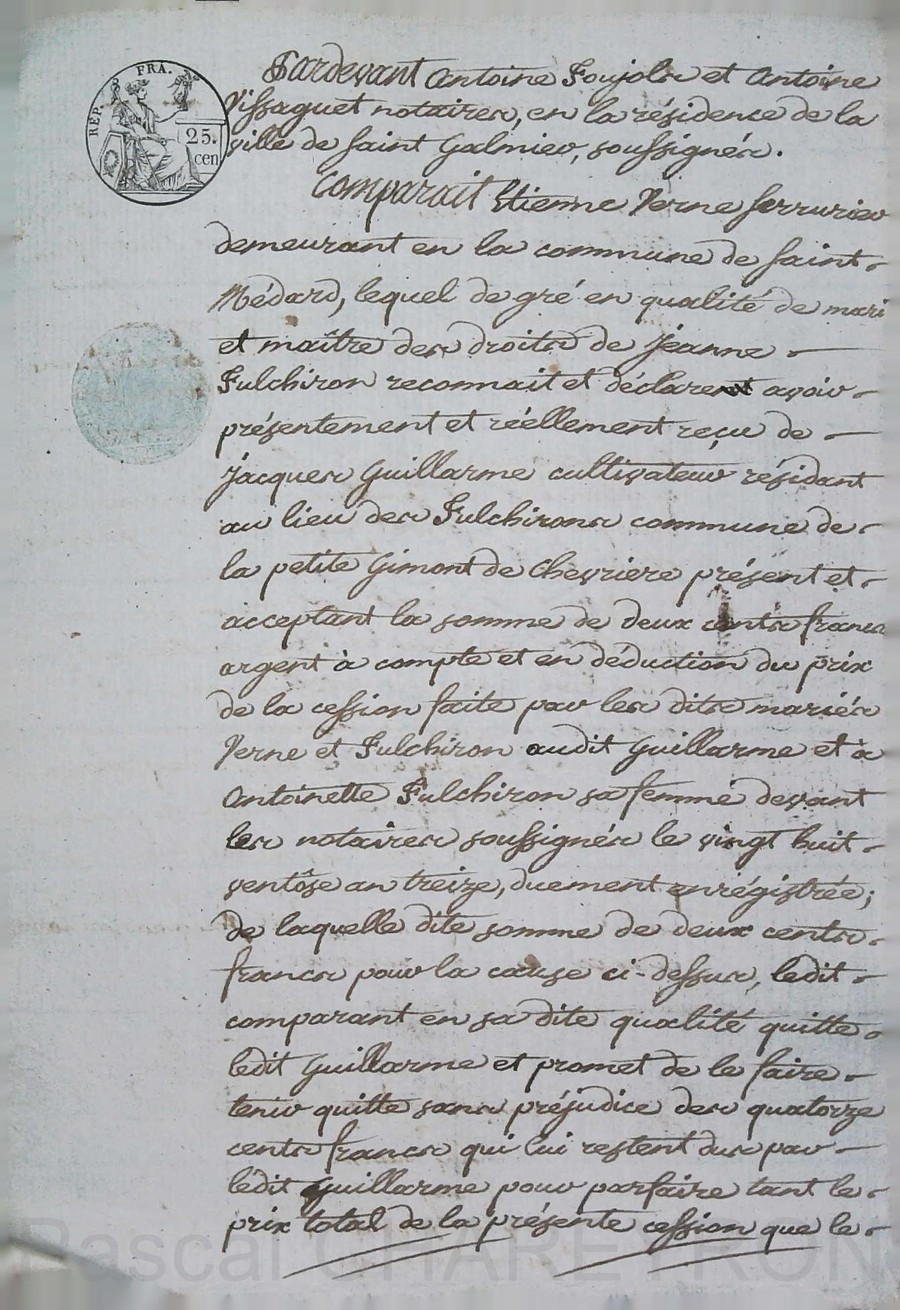 REP. FRA.
25.
cen
Pardevant antoine Foujols et antoine
Vissaguet notaires, en la résidence de la
ville de saint Galmier, soussignés.
Comparait Etienne Verne serrurier
demeurant en la commune de saint-
Médard, lequel de gré en qualité de mari
et maître des droits de jeanne -
Fulchiron reconnait et déclare avoir -
présentement et réellement reçu de -
jacques Guillarme cultivateur résidant
au lieu des Fulchirons commune de -
la petite Gimont de Chevriere présent et -
acceptant la somme de deux cents francs
argent à compte et en déduction du prix
de la cession faite par les dits mariés
Verne et Fulchiron audit Guillarme et à
antoinette Fulchiron sa femme devant
les notaires soussignés le vingt huit -
ventôse an treize, duement enrégistrée;
de laquelle dite somme de deux cents -
francs pour la cause ci-dessus, ledit -
comparant en sa dite qualité quitte -
ledit Guillarme et promet de le faire -
tenir quitte sans préjudice des quatorze
cents francs qui lui restent dus par -
ledit Guillarme pour parfaire tant le -
prix total de la présente cession que le -
Pascal CHAREYRON